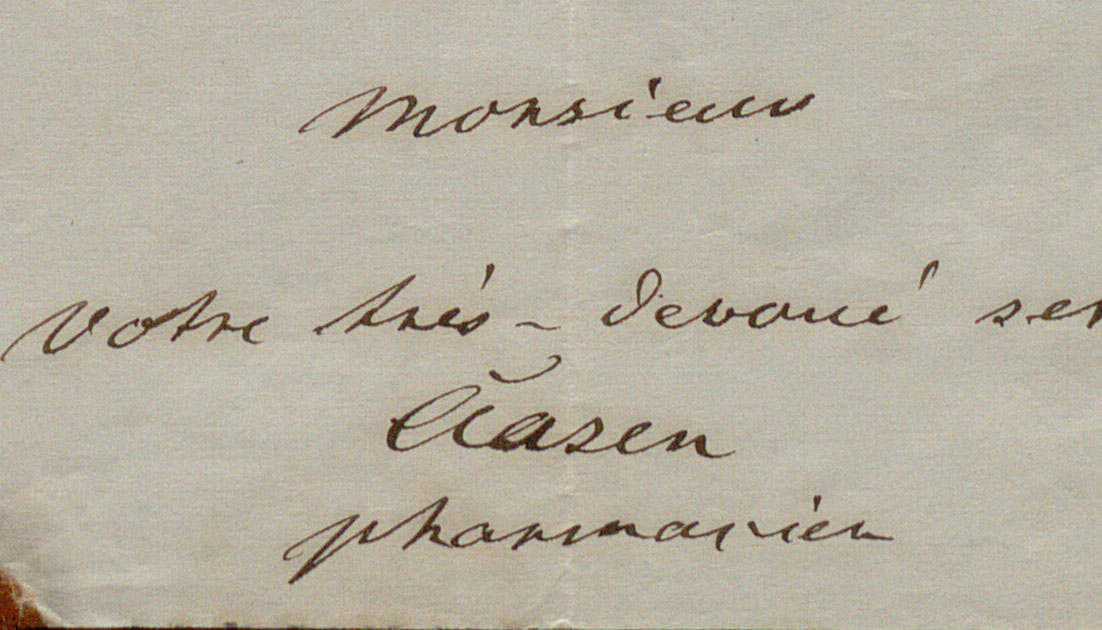 Monsieur
votre très-devoué ser
Clasen
pharmacien